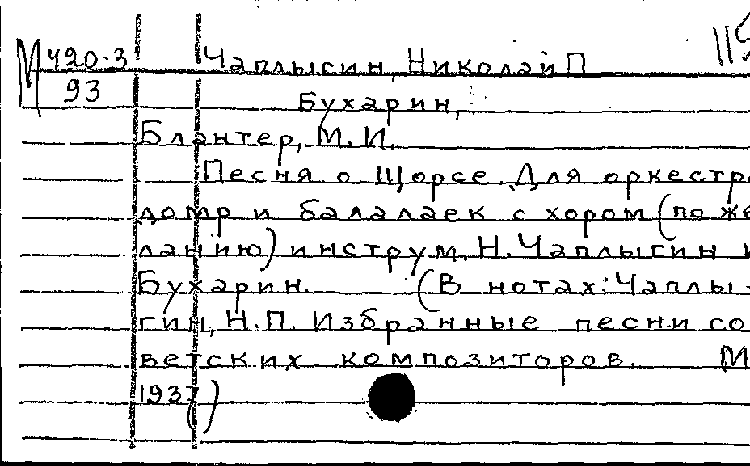 М 420-3 Чаплысин, Николай П 115
93 Бухарин,
Блантер, М. И.
Песня о Щорсе. Для оркестра
домр и балалаек с хором (по же
ланию) инструм. Н. Чаплыгин и
Бухарин. (В нотах: Чаплы-
гин, Н.П. Избранные песни со
ветских композиторов. М
1937)